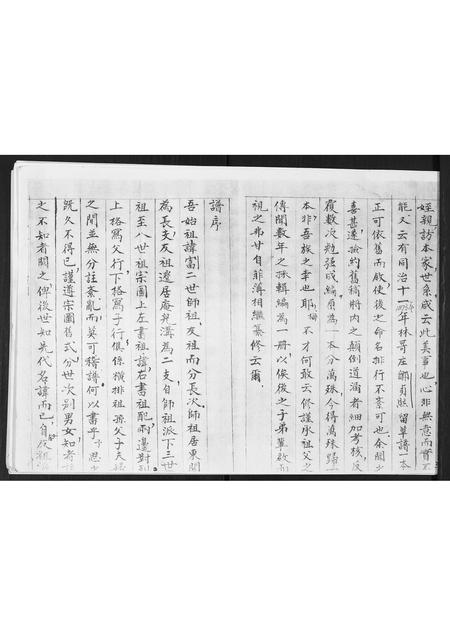 姪親訪本家世系咸云此美事也心非無意而實不
能又云有同治十一年林哥左鄰貢敗留草譜一本
正可依舊而啟使後之命名排行不紊可也余聞之
喜甚遂撿約舊稿將內之顛倒道滴者細加考核反
覆數次勉強成編原為一本分萬殊今得萬殊歸一
本非吾族之幸也耶不才何敢云修謹承祖父之
傳聞數年之採輯編為一冊以俟後之子弟輩啟而
視之弗甘自菲薄相繼纂修云爾
譜序
吾始祖諱富二世師祖友祖而分長次師祖居東關
為長支友祖遷居庵兒溝為二支自師祖派下三世
祖至八世祖宗圖上左書祖諱右書祖配兩邊對列
上格寫父行下格寫子行俱係橫排祖孫父子夫婦
之間並無分註紊亂而莫可稽譜何以書乎思之
既久不得已謹遵宗圖舊式分世次別男女知者註
之不知者闕之俾後世知先代名諱而已自友祖